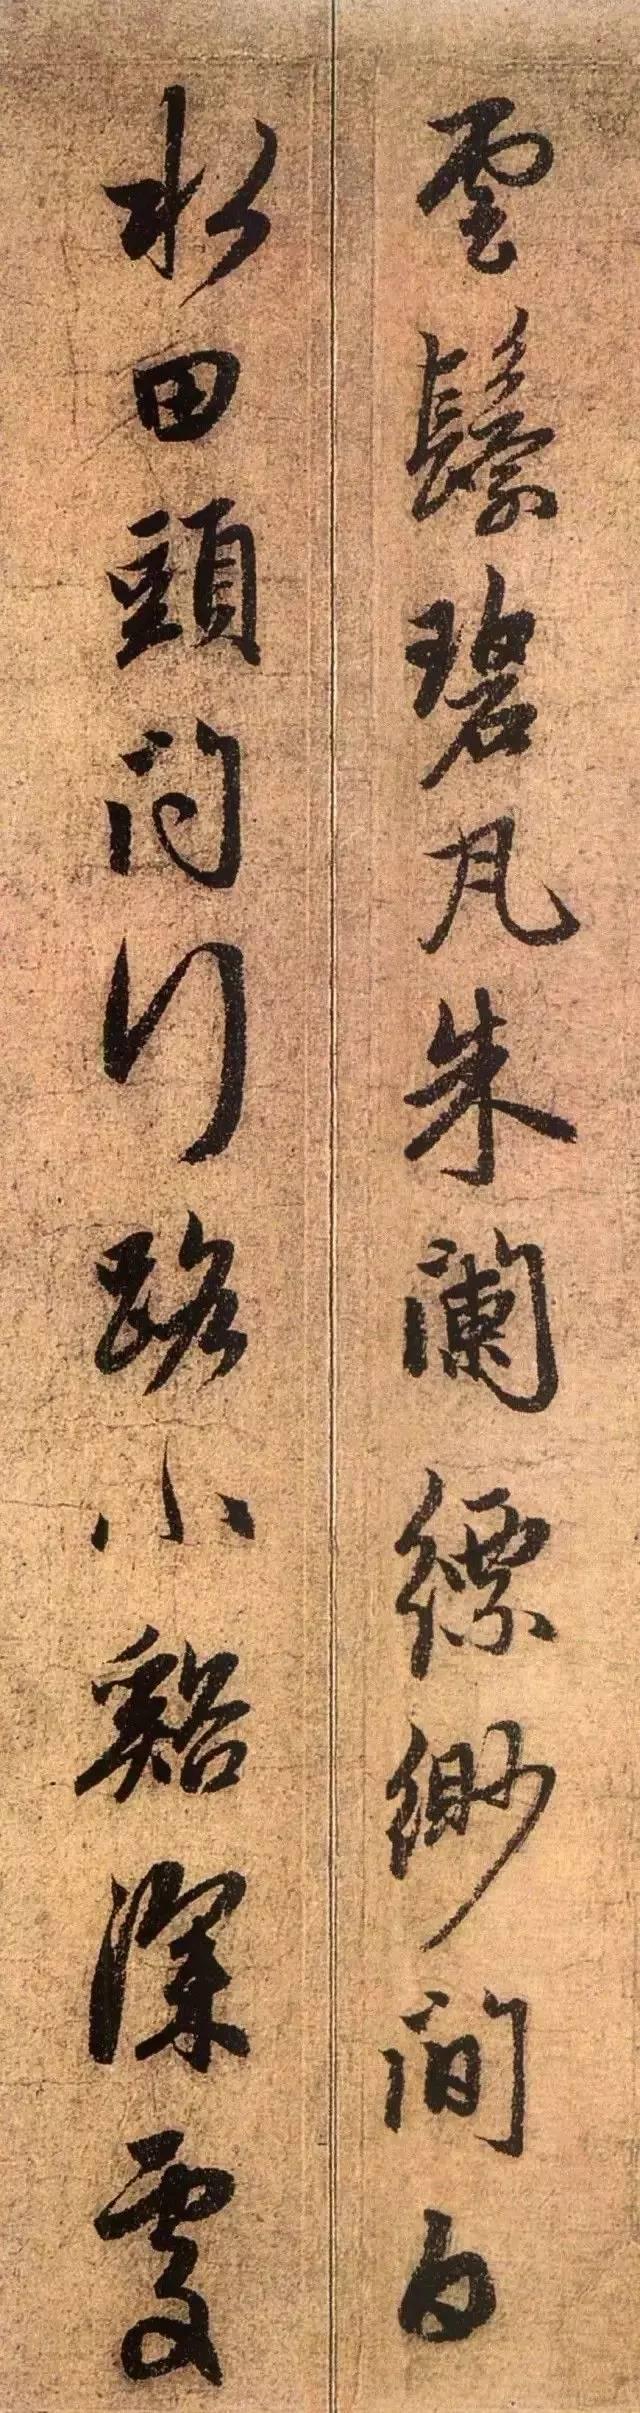 雲鬟碧瓦朱闌縹緲間白
水田頭問行路小谿深處